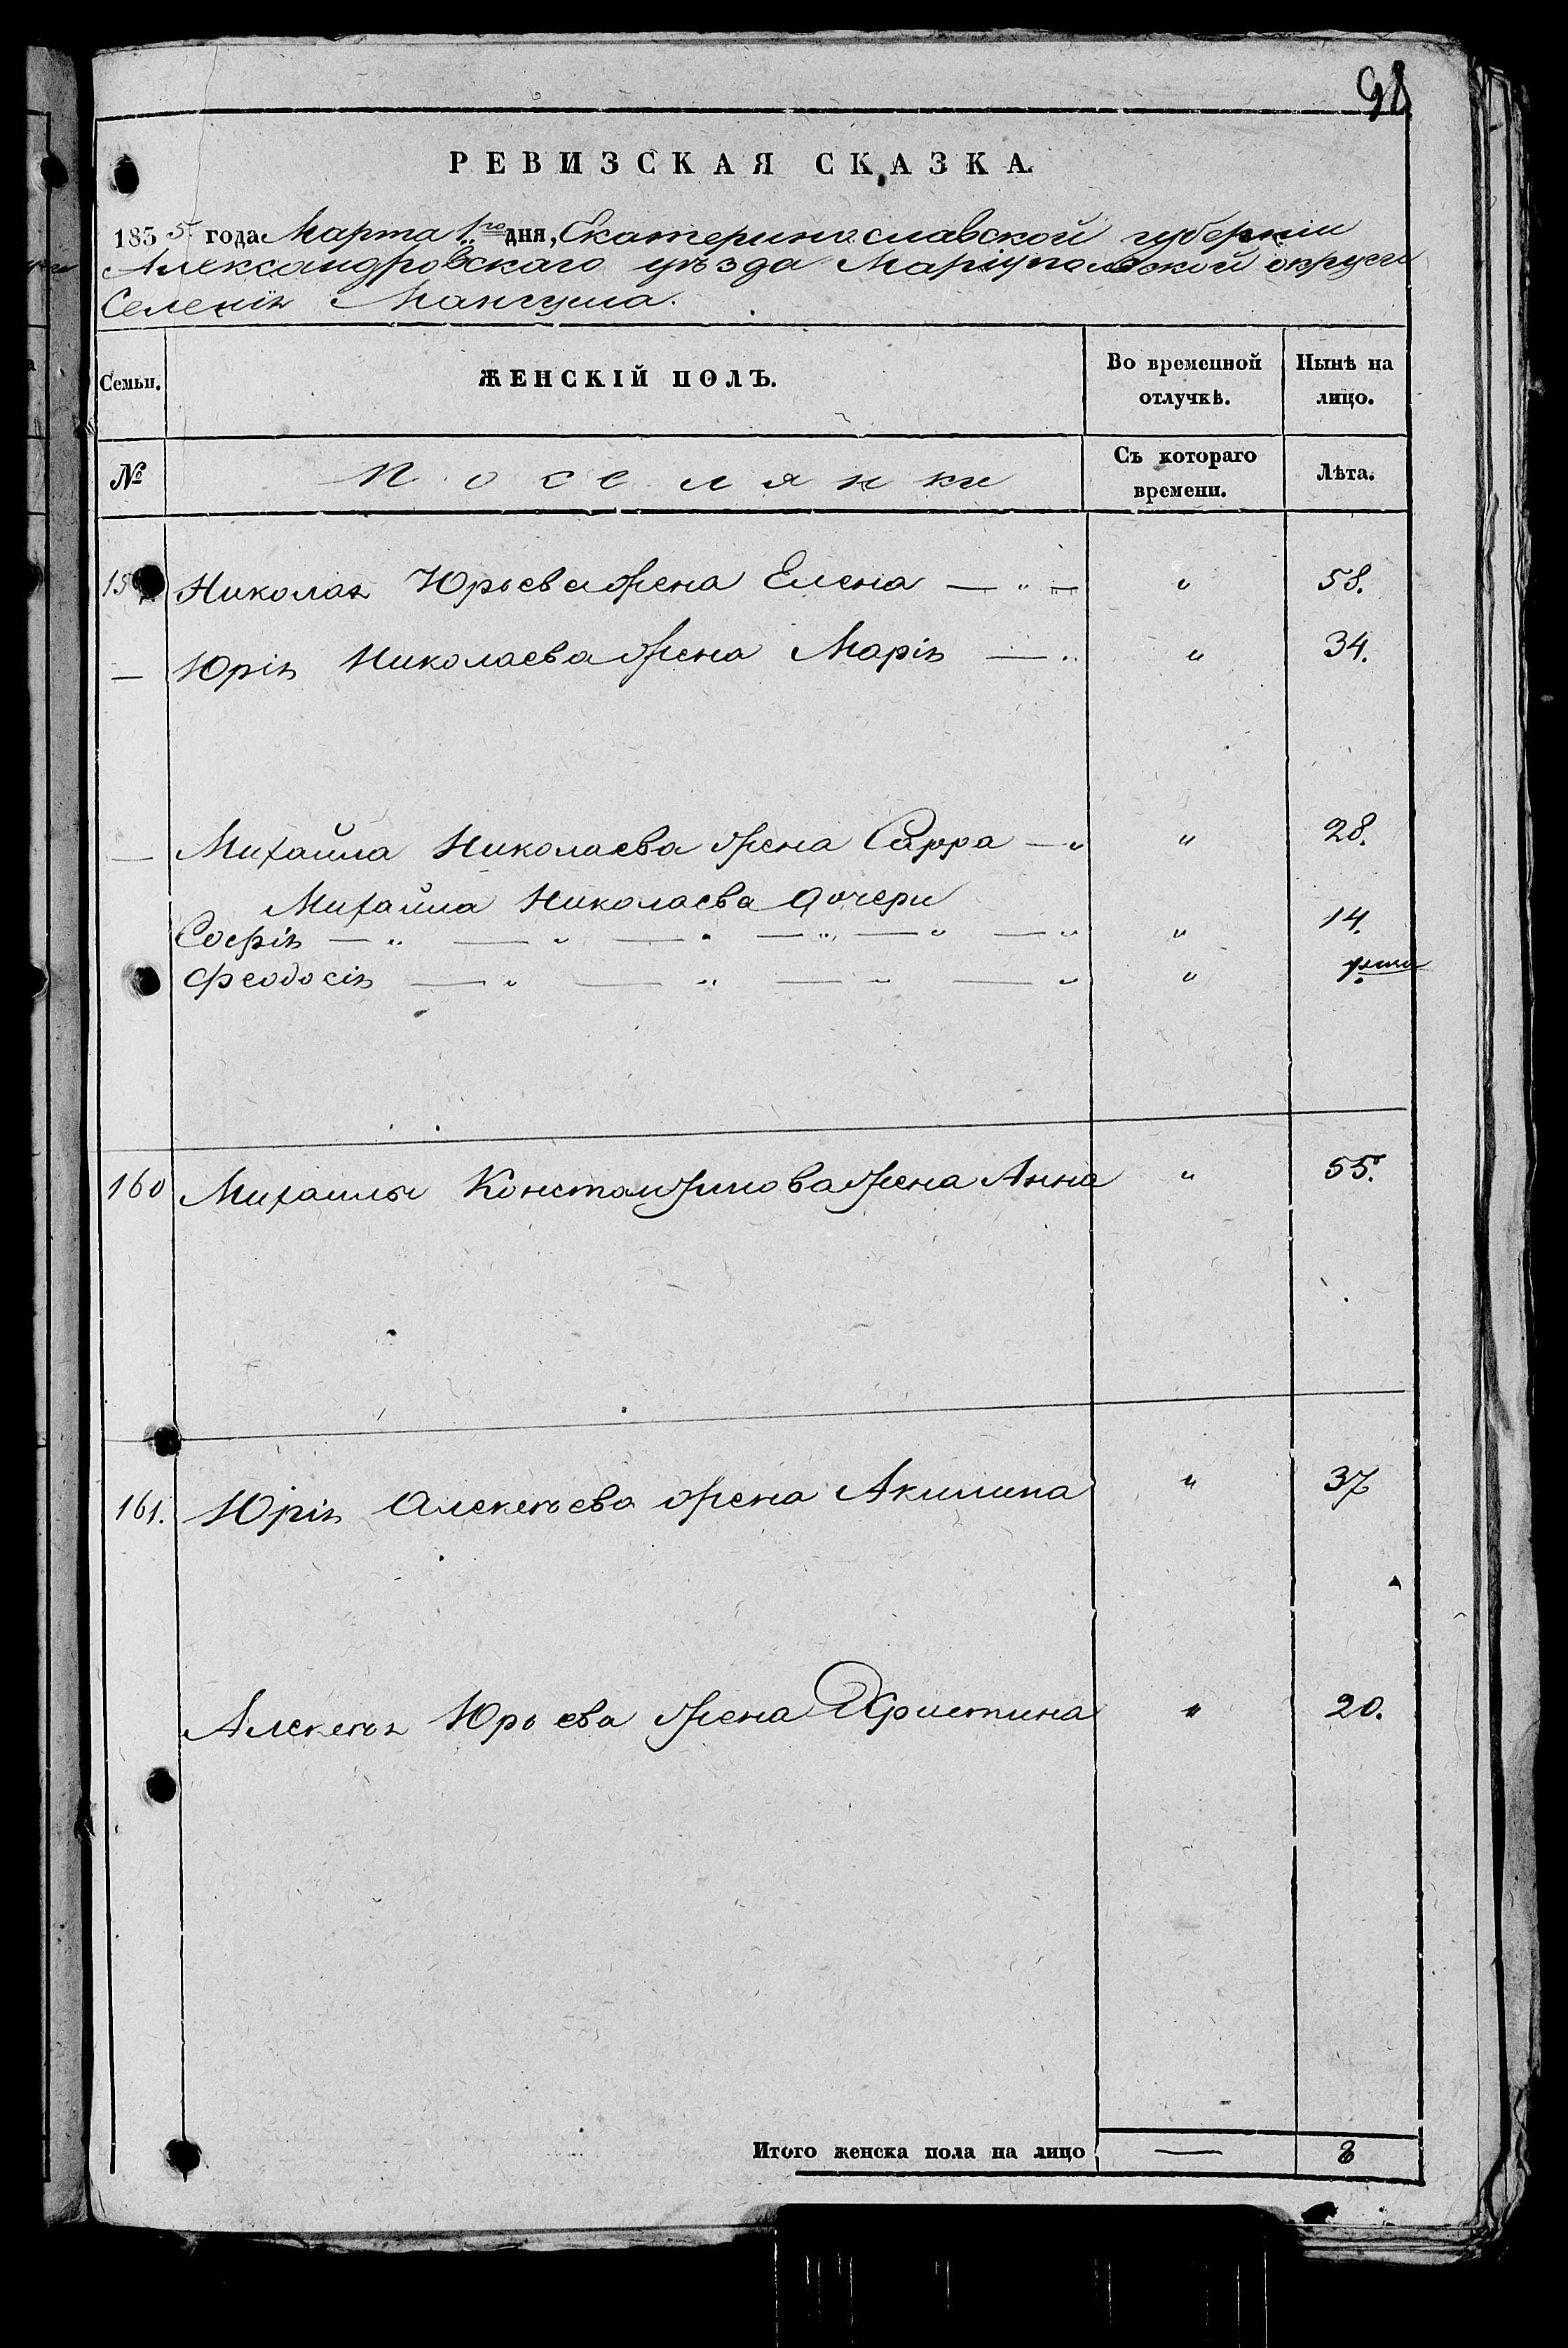 98
РЕВИЗСКАЯ СКАЗКА.
1835 года Марта 1го дня, Екатеринославской губерніи
Александровскаго уѣзда Маріупольской округи
Селенія Мангуша.
Семьи. ЖЕНСКІЙ ПОЛЪ. Во временной отлучкѣ. Нынѣ на лицо.
№ Поселянки Съ котораго времени. Лѣта.
Николая Юрьева жена Елена — „ — „ 58.
— Юрія Николаева жена Марія — „ „ 34.
— Михайла Николаева жена Сарра — „ „ 28.
Михайла Николаева дочери
Софія — „ — „ — „ — „ — „ — „ „ 14.
Феодосія — „ — „ — „ — „ „
160 Михаилы Константинова жена Анна „ 55.
161. Юрія Алексѣева жена Акилина „ 37
Алексѣя Юрьева жена Христина „ 20.
Итого женска пола на лицо — 8